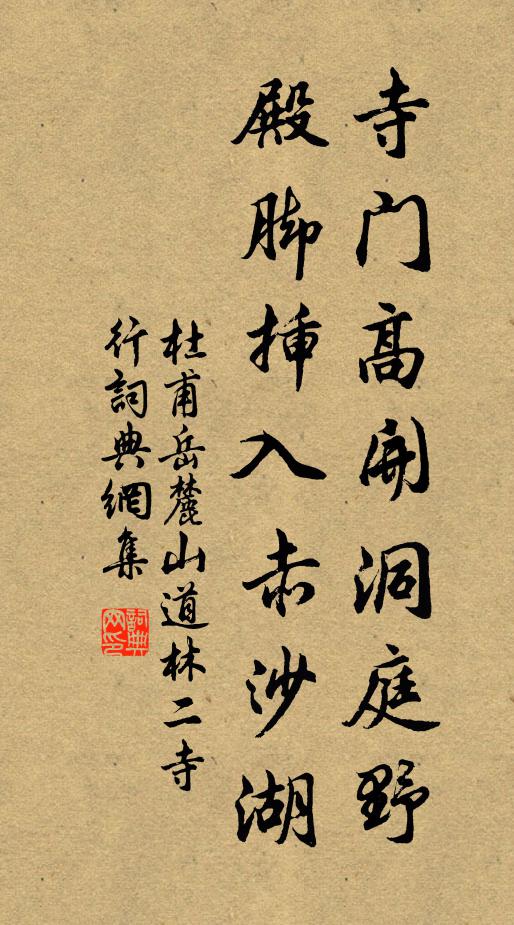 寺门高開洞庭野
殿脚插入赤沙湖
杜甫岳麓山道林二寺
行詞典網集
詞典
网印